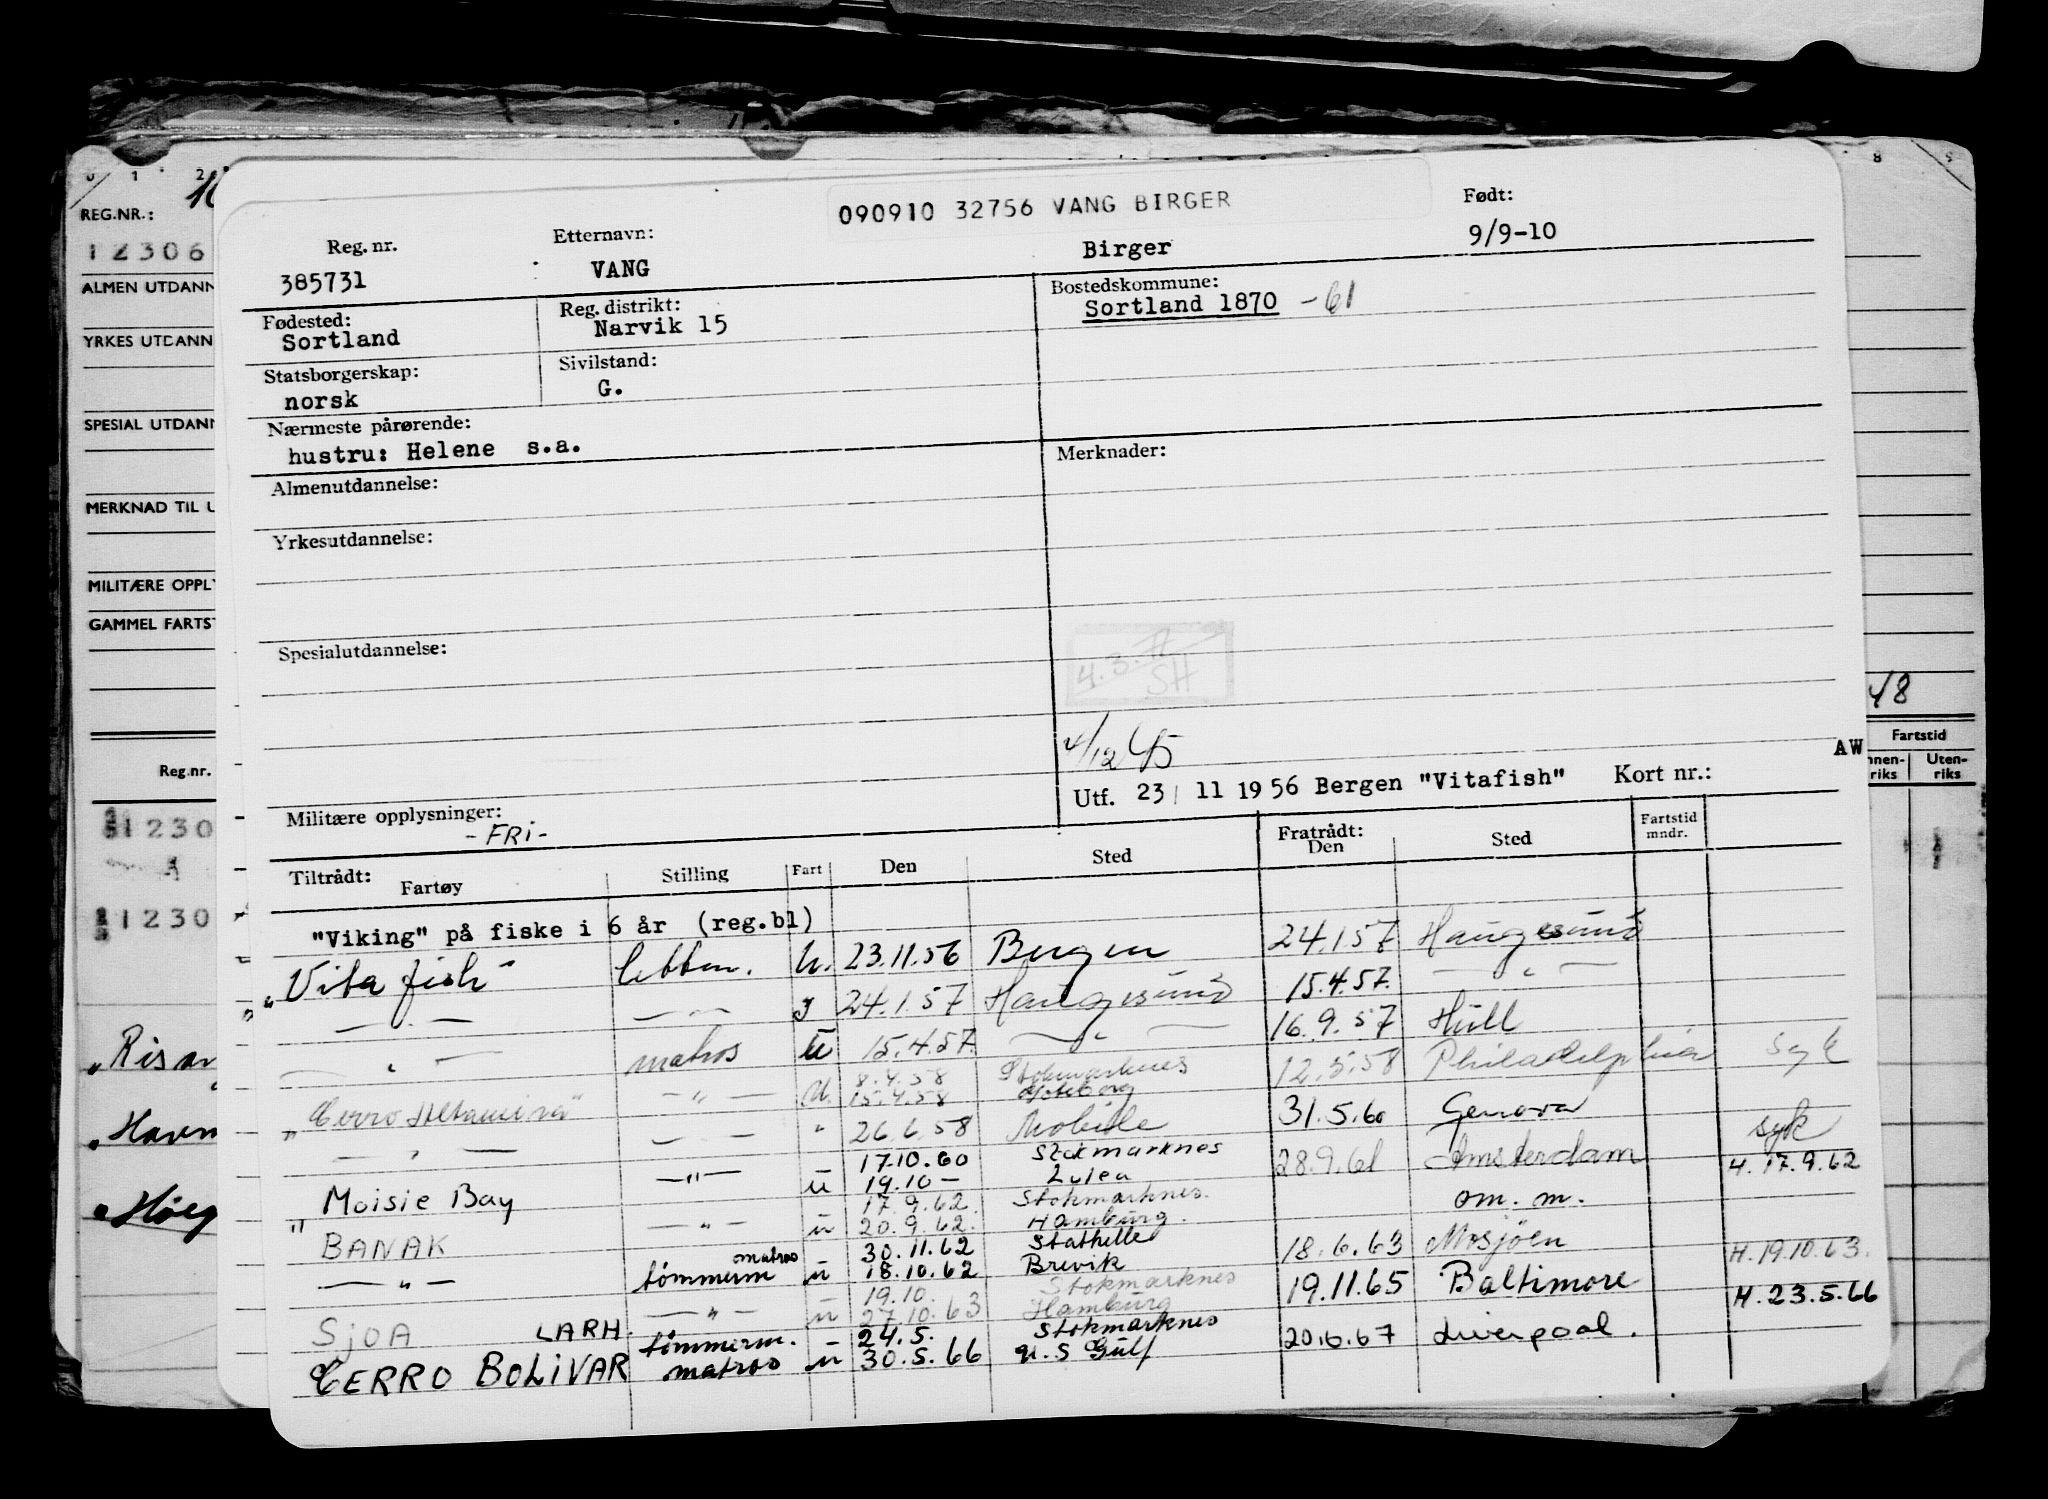 090910 32756 VANG BIRGER
Reg. nr. Etternavn: Født:
385731 VANG Birger 9/9-10
Fødested: Reg. distrikt: Bostedskommune:
Sortland Narvik 15 Sortland 1870 -61
Statsborgerskap: Sivilstand:
norsk G.
Nærmeste pårørende:
hustru: Helene s.a. Merknader:
Almenutdannelse:
Yrkesutdannelse:
Spesialutdannelse:
SH
Utf. 23 11 1956 Bergen "Vitafish" Kort nr.: AW
Militære opplysninger:
-FRI-
Tiltrådt: Fartøy Stilling Fart Den Sted Fratrådt: Den Sted Fartstid mndr.
"Viking" på fiske i 6 år (reg.bl)
"Vitafish" U. 23.11.56 Bergen 24.1.57 Haugesund
— " — — " — 24.1.57 Haugesund 15.4.57. — " —
— " — matros U 15.4.57. — " — 16.9.57 Hull
8.4.58 Stokmarknes
"Cerro Altamira" — " — U. 15.4.58 Gøteborg 12.5.58 Philadelphia syk
— " — — " — " 26.6.58 Mobile 31.5.60 Genova
17.10.60 Stokmarknes syk
" Moisie Bay — " — u 19.10 — Lulea 28.9.61 Amsterdam H. 17.9.62
17.9.62 Stokmarknes.
BANAK — " — u 20.9.62. Hamburg. om. m.
matros 30.11.62 Stathelle
— " — tømmerm u 18.10.62 Brevik 18.6.63 Mosjøen H. 19.10.63.
19.10. Stokmarknes
SJOA — " — u 27.10.63 Hamburg 19.11.65 Baltimore H. 23.5.66
LARH. tømmerm. 24.5. Stokmarknes
CERRO BOLIVAR matros u 30.5.66 U.S Gulf 20.6.67 Liverpool.
0 1 2 8 9
REG.NR.:
12306
ALMEN UTDANN
YRKES UTDANN
SPESIAL UTDANN
MERKNAD TIL U
MILITÆRE OPPLY
GAMMEL FARTST
Reg.nr.
1230
1230
48
Fartstid
nnen-riks Uten-riks